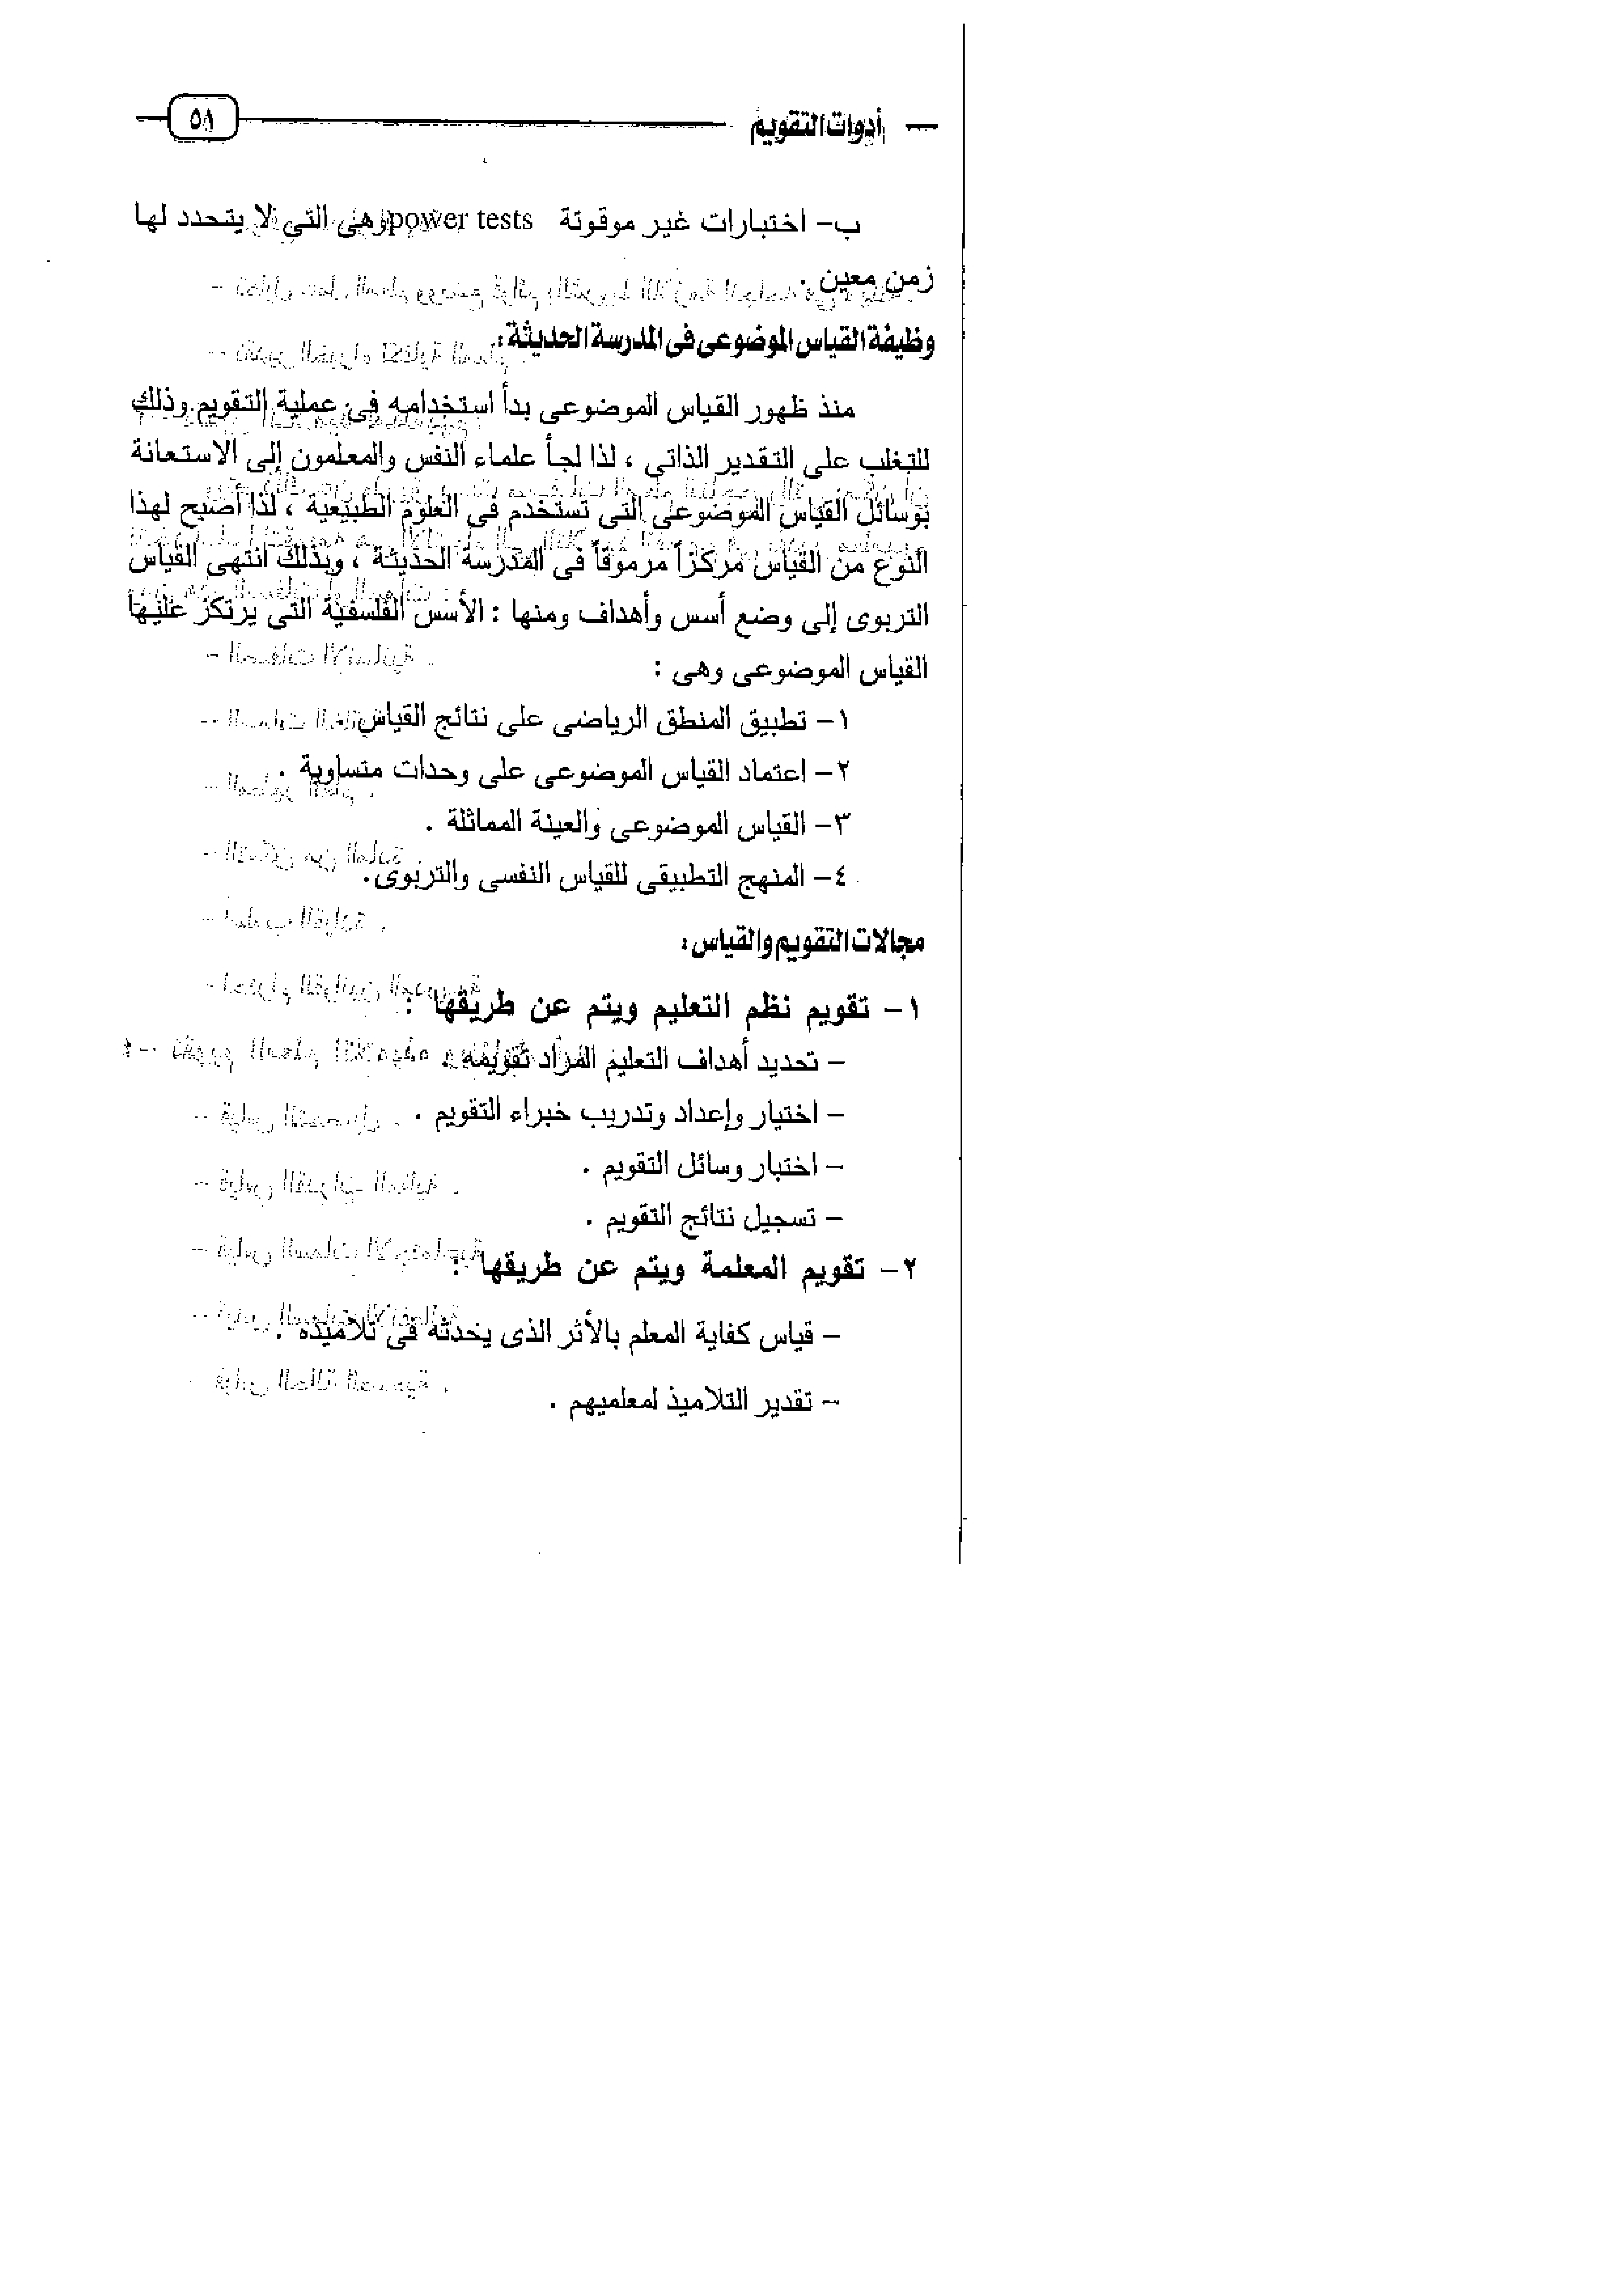 أدوات التقويم
٥٨
ب- اختبارات غير موقوتة power tests وهى التي لا يتحدد لها
زمن معين .
وظيفة القياس الموضوعى فى المدرسة الحديثة :
منذ ظهور القياس الموضوعى بدأ استخدامه فى عملية التقويم وذلك
للتغلب على التقدير الذاتى ، لذا لجأ علماء النفس والمعلمون إلى الاستعانة
بوسائل القياس الموضوعى التى تستخدم فى العلوم الطبيعية ، لذا أصبح لهذا
النوع من القياس مركزاً مرموقاً فى المدرسة الحديثة ، وبذلك انتهى القياس
التربوى إلى وضع أسس وأهداف ومنها : الأسس الفلسفية التى يرتكز عليها
القياس الموضوعى وهى :
١- تطبيق المنطق الرياضى على نتائج القياس
٢- اعتماد القياس الموضوعى على وحدات متساوية .
٣- القياس الموضوعى والعينة المماثلة .
٤- المنهج التطبيقى للقياس النفسى والتربوى .
مجالات التقويم والقياس :
١- تقويم نظم التعليم ويتم عن طريقها :
- تحديد أهداف التعليم المراد تقويمه .
- اختيار وإعداد وتدريب خبراء التقويم .
- اختبار وسائل التقويم .
- تسجيل نتائج التقويم .
٢- تقويم المعلمة ويتم عن طريقها :
- قياس كفاية المعلم بالأثر الذى يحدثه فى تلاميذه .
- تقدير التلاميذ لمعلميهم .